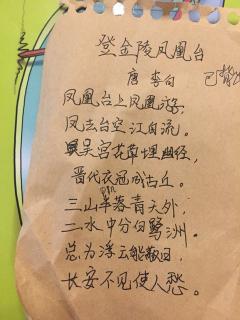 登金陵凤凰台
唐 李白 已
凤凰台上凤凰游,
凤去台空江自流。
吴宫花草埋幽径,
晋代衣冠成古丘。
三山半落青天外,
二水中分白鹭洲。
总为浮云能蔽日,
长安不见使人愁。